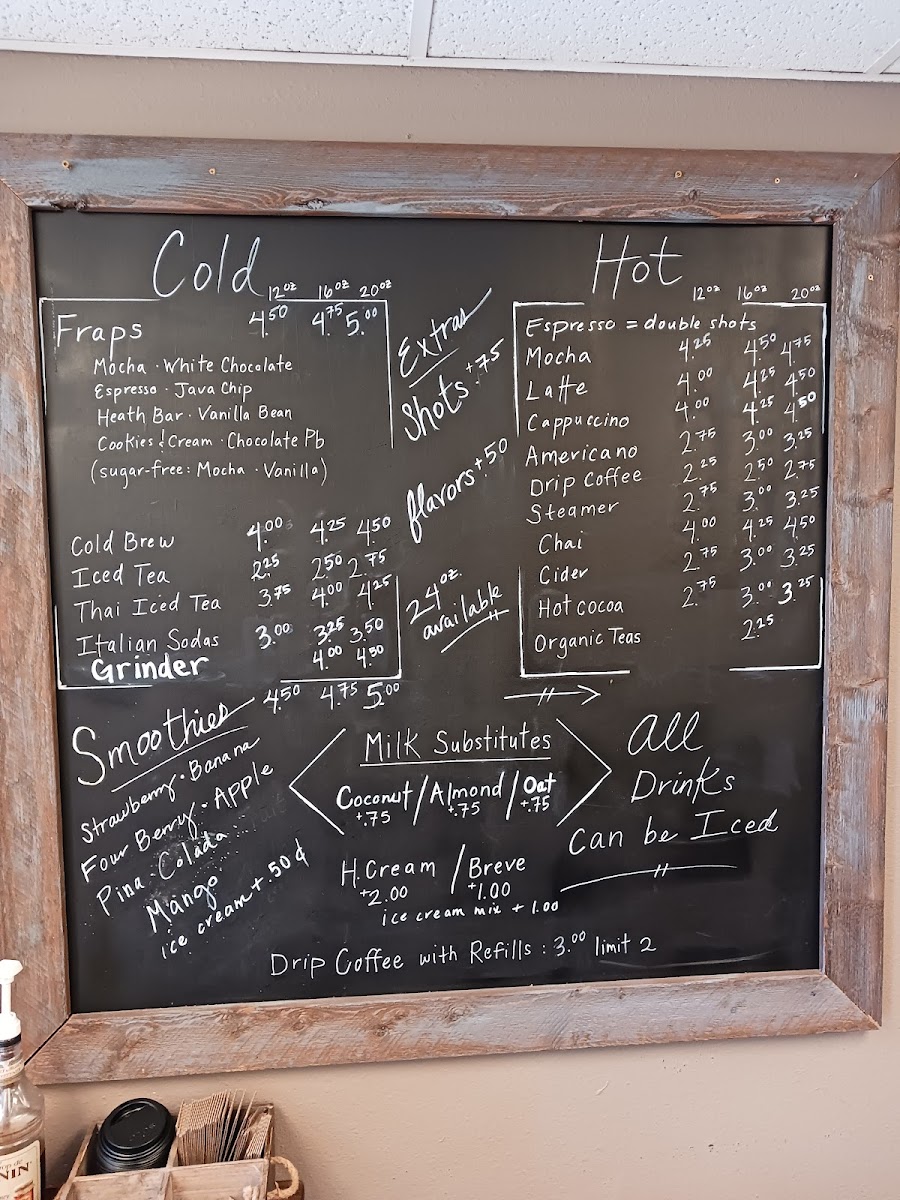 Cold
12oz 16oz 20oz
Fraps 4.50 4.75 5.00
Mocha · White Chocolate
Espresso · Java Chip
Heath Bar · Vanilla Bean
Cookies & Cream · Chocolate Pb
(sugar-free: Mocha · Vanilla)
Cold Brew 4.00 4.25 4.50
Iced Tea 2.25 2.50 2.75
Thai Iced Tea 3.75 4.00 4.25
Italian Sodas 3.00 3.25 3.50
Grinder 4.00 4.50
Extras
Shots +.75
flavors +.50
24oz.
available
Hot
12oz 16oz 20oz
Espresso = double shots
Mocha 4.25 4.50 4.75
Latte 4.00 4.25 4.50
Cappuccino 4.00 4.25 4.50
Americano 2.75 3.00 3.25
Drip Coffee 2.25 2.50 2.75
Steamer 2.75 3.00 3.25
Chai 4.00 4.25 4.50
Cider 2.75 3.00 3.25
Hot cocoa 2.75 3.00 3.25
Organic Teas 2.25
Smoothies 4.50 4.75 5.00
Strawberry · Banana
Four Berry · Apple
Pina · Colada
Mango
ice cream +.50¢
Milk Substitutes
Coconut / Almond / Oat
+.75 +.75 +.75
H. Cream / Breve
+2.00 +1.00
ice cream mix + 1.00
All
Drinks
Can be Iced
Drip Coffee with Refills : 3.00 limit 2
NIN